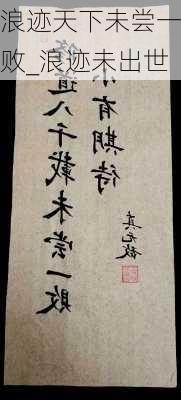 浪迹天下未尝一
败_浪迹未出世
道八千载未尝一败
小有期待
真无敌